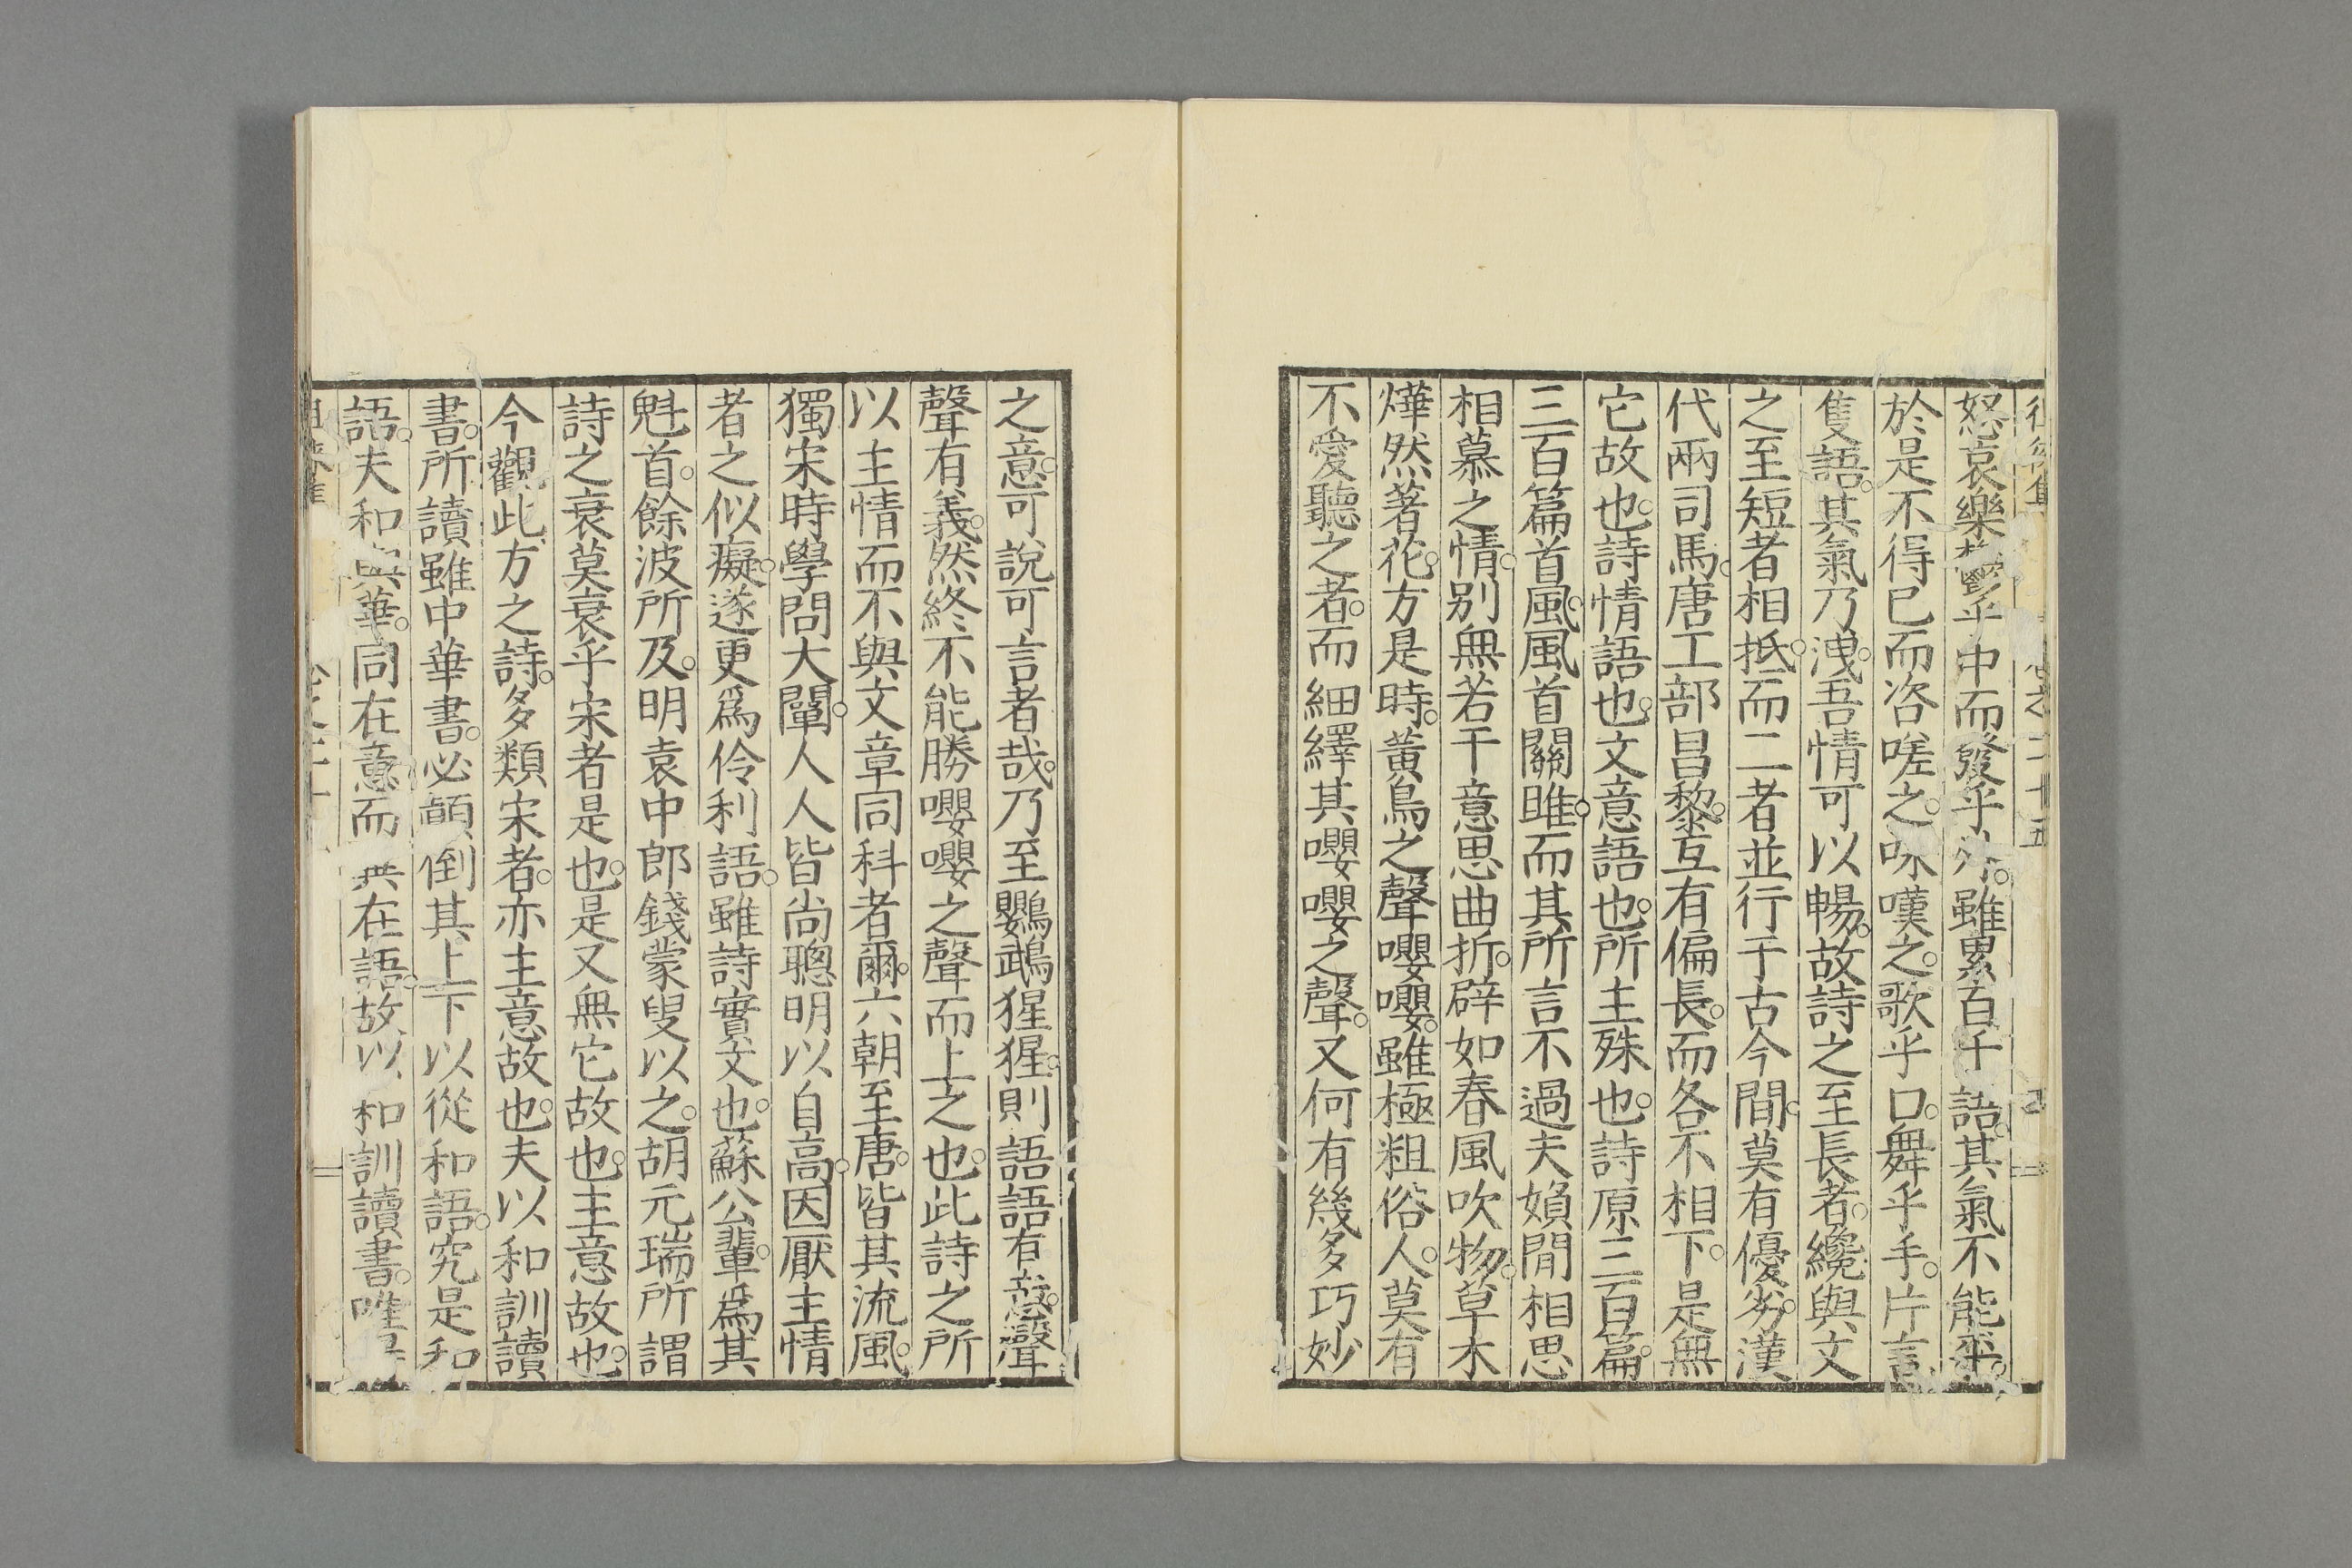 卷之二十五
怒哀樂欝乎中而發乎外雖累百千語其氣不能平
於是不得已而咨嗟之咏嘆之歌乎口舞乎手片言
隻語其氣乃洩吾情可以暢故詩之至長者纔與文
之至短者相抵而二者並行于古今間莫有優劣漢
代兩司馬唐工部昌黎互有偏長而各不相下是無
它故也詩情語也文意語也所主殊也詩原三百篇
三百篇首風風首關雎而其所言不過夫婦閒相思
相慕之情別無若干意思曲折辟如春風吹物草木
燁然著花方是時黃鳥之聲嚶嚶雖極粗俗人莫有
不愛聽之者而細繹其嚶嚶之聲又何有幾多巧妙
之意可說可言者哉乃至鸚鵡猩猩則語語有意聲
聲有義然終不能勝嚶嚶之聲而上之也此詩之所
以主情而不與文章同科者爾六朝至唐皆其流風
獨宋時學問大闡人人皆尚聰明以自高因厭主情
者之似癡遂更爲伶利語雖詩實文也蘇公輩爲其
魁首餘波所及明袁中郎錢蒙叟以之胡元瑞所謂
詩之衰莫衰乎宋者是也是又無它故也主意故也
今觀此方之詩多類宋者亦主意故也夫以和訓讀
書所讀雖中華書必顛倒其上下以從和語究是和
語夫和與華同在意而異在語故以和訓讀書唯得